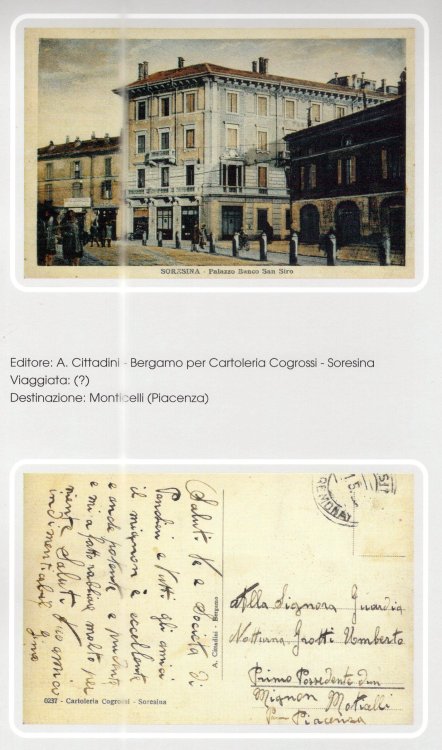 SORESINA - Palazzo Banco San Siro
Editore: A. Cittadini - Bergamo per Cartoleria Cogrossi - Soresina
Viaggiata: (?)
Destinazione: Monticelli (Piacenza)
Saluti Te e Società di
Pandini e Tutti gli amici
il mignon è eccellente
e anche potente e
e mi a fatto rabbiare molto per
niente Saluti Tuo amico
indimenticabile
A. Cittadini - Bergamo
6237 - Cartoleria Cogrossi - Soresina
CREMONA
Alla Signora Guardia
Notturna Grotti Umberto
Primo Possedente dun
Mignon Moticelli
Piacenza